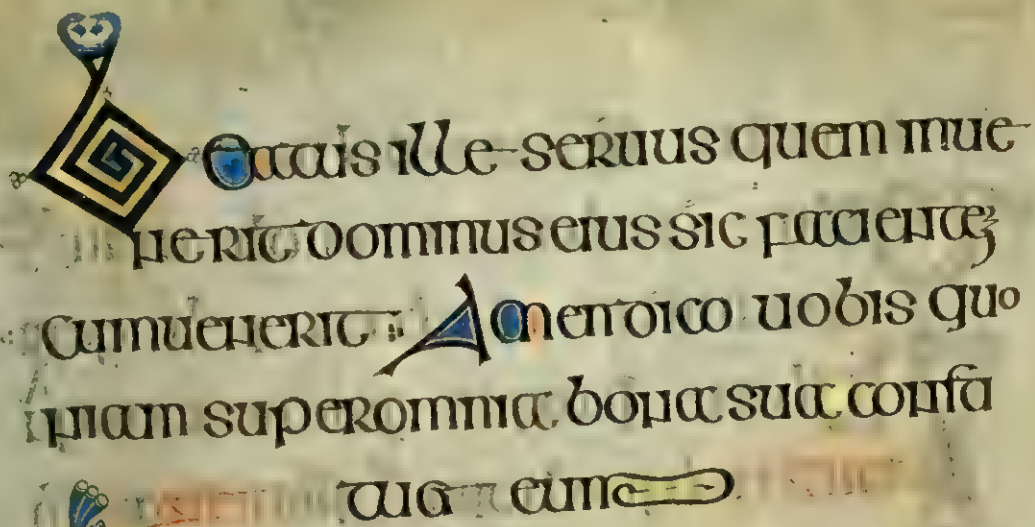 Beatus ille seruus quem inue
nerit dominus eius sic facientem
cum uenerit : Amen dico uobis quo
niam super omnia bona sua consti
tuet eum